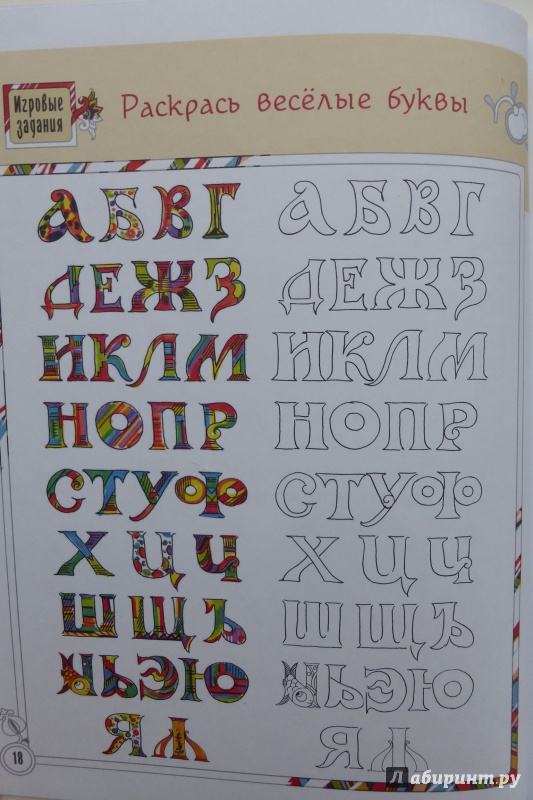 Игровые
задания
Раскрась весёлые буквы
АБВГ АБВГ
ДЕЖЗ ДЕЖЗ
ИКЛМ ИКЛМ
НОПР НОПР
СТУФ СТУФ
ХЦЧ ХЦЧ
ШЩЪ ШЩЪ
ЬЭЮ ЬЭЮ
Я Я
18
Лабиринт.ру